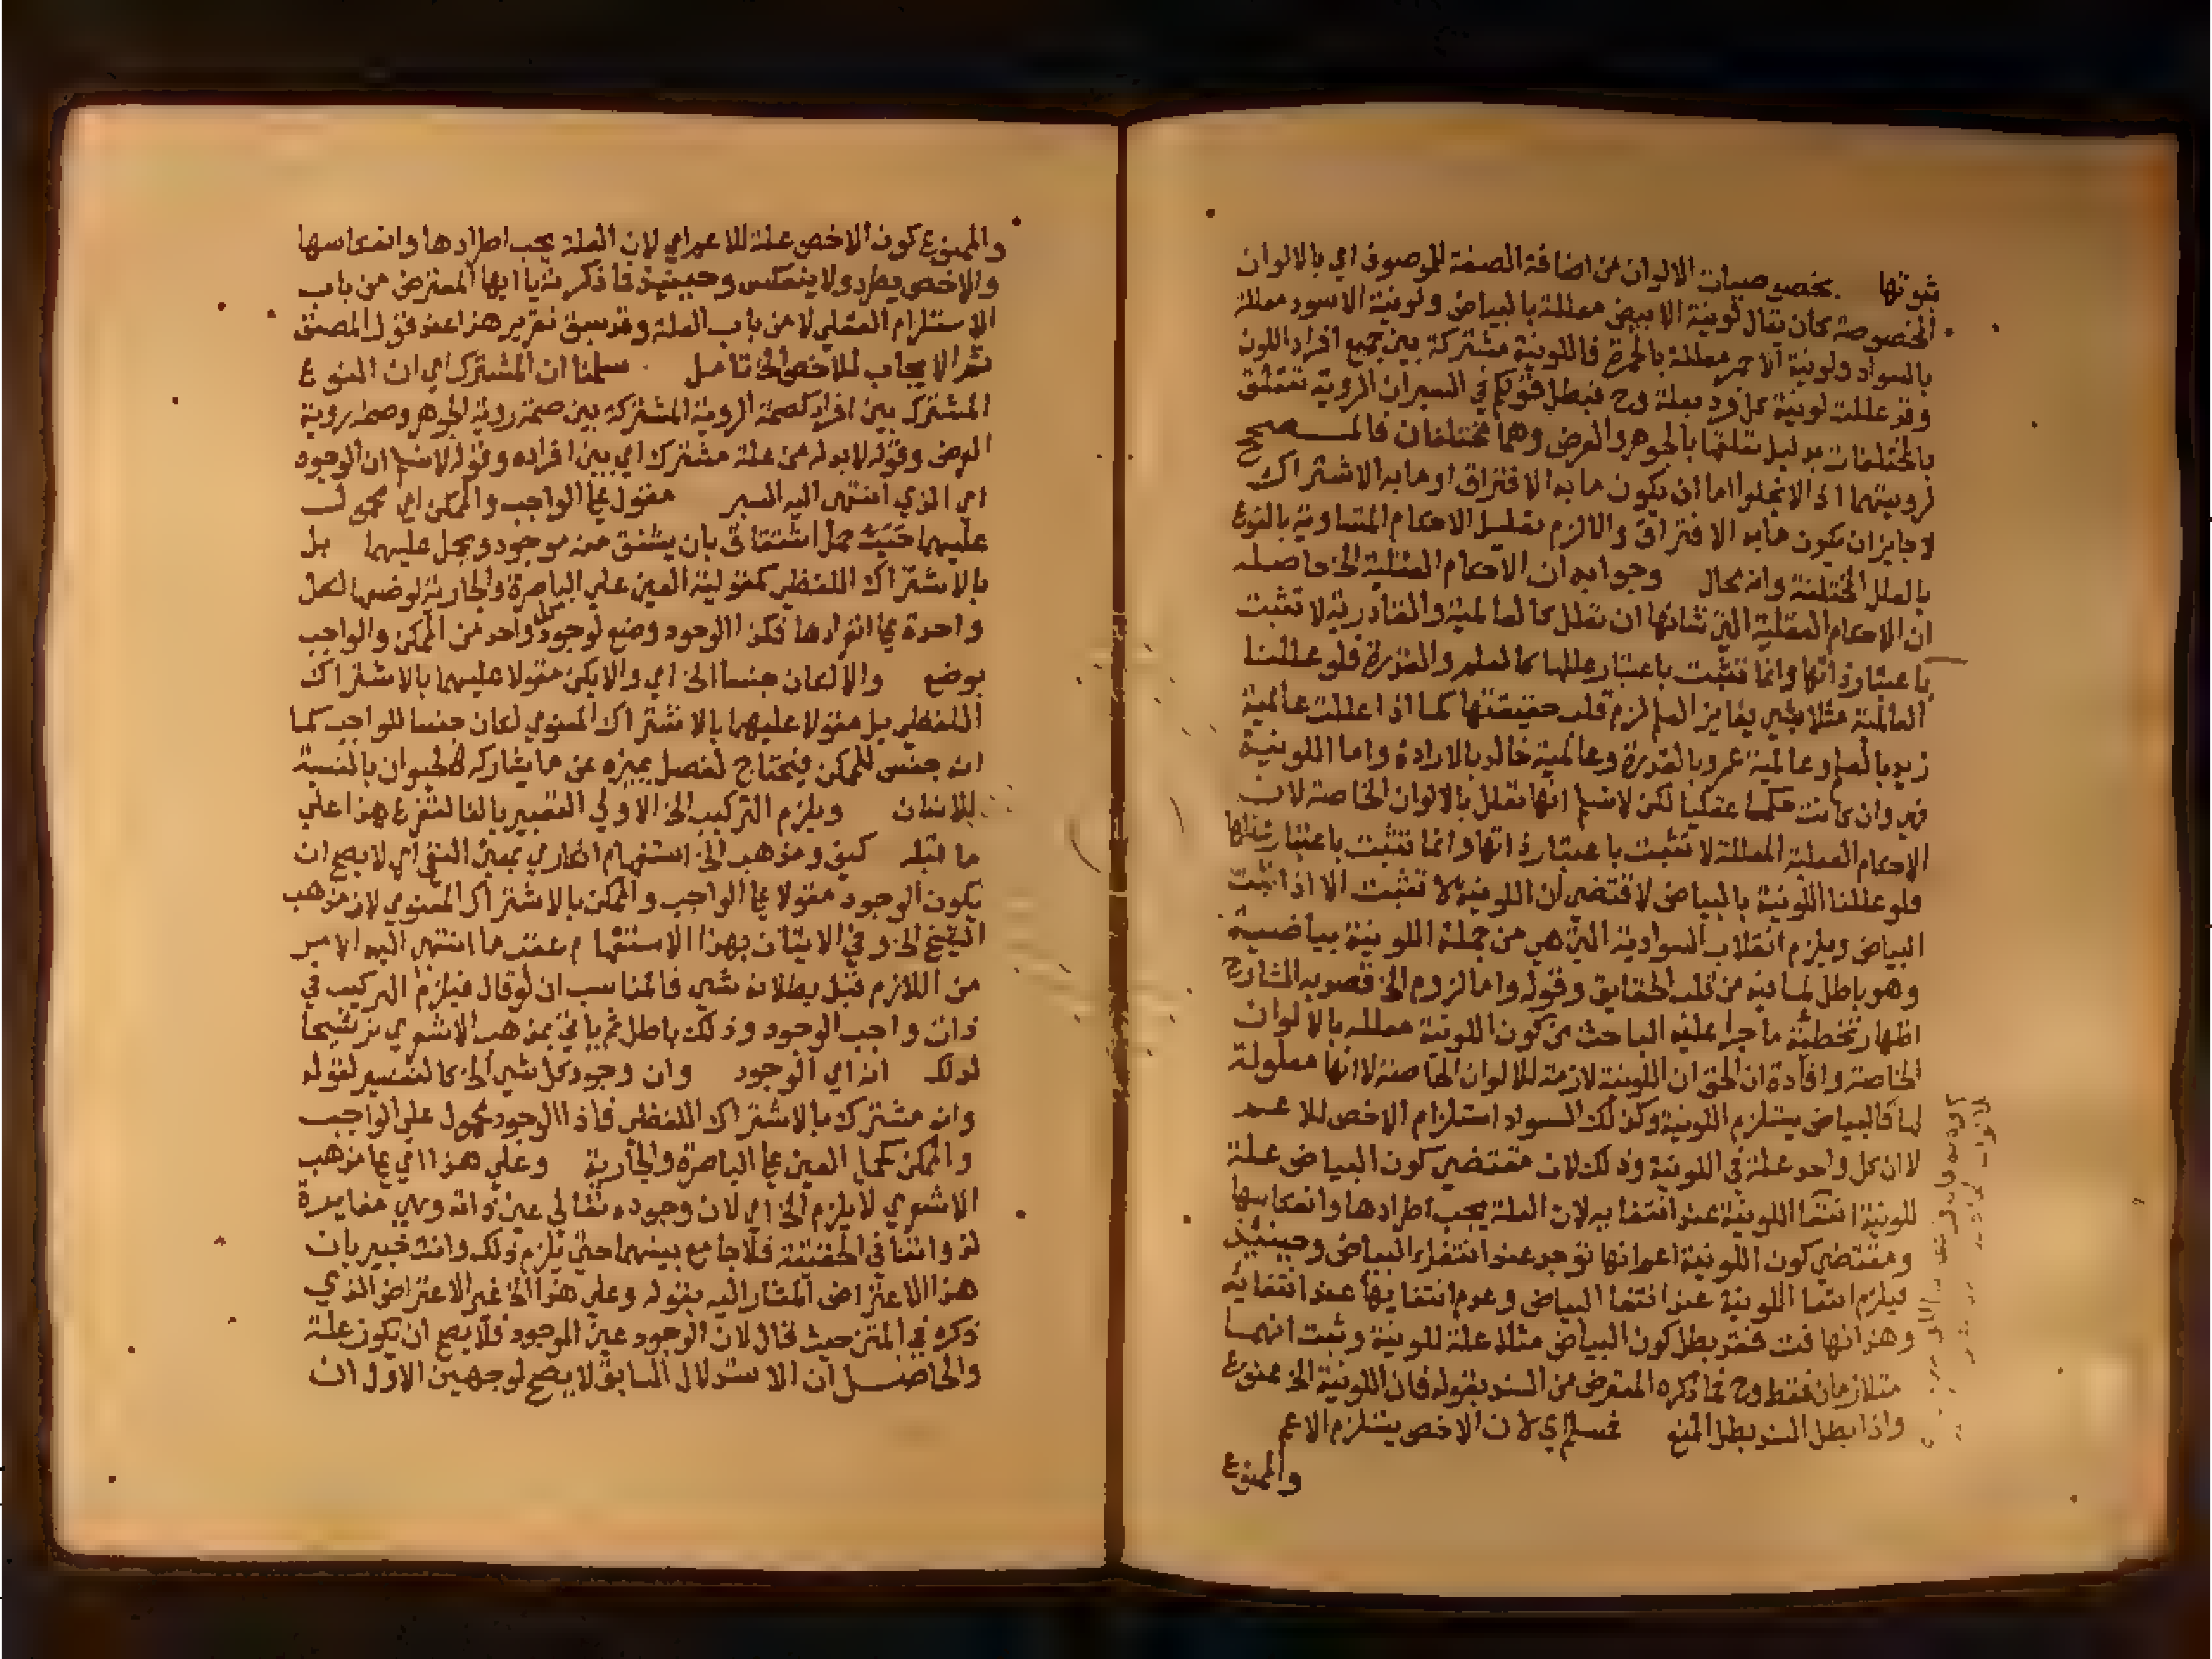 ثبوتها بخصوصيات الالوان من اضافة الصفة للموصوف اي بالالوان
المخصوصة كأن يقال لونية الابيض معللة بالبياض ولونية الاسود معللة
بالسواد ولونية الاحمر معللة بالحمرة فاللونية مشتركة بين جميع افراد اللون
وقد عللت لونية كل فرد بعلة وح فبطل قولكم في السبر ان الروية تتعلق
بالمختلفات بدليل تعلقها بالجوهر والعرض وهما مختلفان فالمصحح
لرويتهما اذ لا يخلوا اما ان يكون ما به الافتراق او ما به الاشتراك
لا جايز ان يكون ما به الافتراق والا لزم تعليل الاحكام المتساوية بالنوع
بالعلل المختلفة وانه محال وجوابه ان الاحكام العقلية الخ حاصله
ان الاحكام العقلية التي شانها ان تعلل كالعالمية والقادرية لا تثبت
باعتبار ذاتها وانما تثبت باعتبار عللها كالعلم والقدرة فلو عللنا
العالمية مثلا بشي يغاير العلم لزم قلب حقيقتها كما اذا عللت عالمية
زيد بالعلم وعالمية عمرو بالقدرة وعالمية خالد بالارادة واما اللونية
فهي وان كانت حكما عقليا لكن لا نسلم انها تعلل بالالوان الخاصة لان
الاحكام العقلية المعللة لا تثبت باعتبار ذاتها وانما تثبت باعتبار عللها
ولو عللنا اللونية بالبياض لاقتضي ان اللونية لا تثبت الا اذا ثبت
البياض ويلزم انقلاب السوادية التي هي من جملة اللونية بياضية
وهو باطل لما فيه من قلب الحقايق وقوله واما لزوم الخ قصد به الشارح
اظهار تخطئة ما جرا عليه الباحث من كون اللونية معللة بالالوان
الخاصة وافادة ان الحق ان اللونية لازمة للالوان الخاصة لا انها معلولة
لها فالبياض يستلزم اللونية وكذلك السواد استلزام الاخص للاعم
لا ان كل واحد علة في اللونية وذلك لان مقتضي كون البياض علة
للونية انتفا اللونية عند انتفايه لان العلة يجب اطرادها وانعكاسها
ومقتضي كون اللونية اعم انها توجد عند انتفاء البياض وحينئذ
فيلزم انتفا اللونية عند انتفا البياض وعدم انتفايها عند انتفايه
وهذا تهافت فقد بطل كون البياض مثلا علة للونية وثبت انهما
متلازمان فقط وح فما ذكره المعترض من السند بقوله فان اللونية الخ ممنوع
واذا بطل السند بطل المنع فمسلم اي لان الاخص يستلزم الاعم
والممنوع
والممنوع كون الاخص علة للاعم اي لان العلة يجب اطرادها وانعكاسها
والاخص يطرد ولا ينعكس وحينئذ فما ذكرته يا ايها المعترض من باب
الاستلزام العقلي لا من باب العلة وقد سبق تقرير هذا عند قول المصنف
ثم الايجاب للاخص الخ تامل سلمنا ان المشترك اي ان النوع
المشترك بين افراد كصحة الروية المشتركة بين صحة روية الجوهر وصحة روية
العرض وقوله لا بد له من علة مشترك اي بين افراده وقوله لا نسلم ان الوجود
اي الذي انتهي اليه السبر مقول علي الواجب والممكن اي محمول
عليهما حيث حمل اشتقاق بان يشتق منه موجود ويحمل عليهما بل
بالاشتراك اللفظي كمقولية العين علي الباصرة والجارية لوضعها لكل
واحدة علي انفرادها فكذا الوجود وضع لوجود كل واحد من الممكن والواجب
بوضع والا لكان جنسا الخ اي والا يكن مقولا عليهما بالاشتراك
اللفظي بل مقولا عليهما بالاشتراك المعنوي لكان جنسا للواجب كما
انه جنس للممكن فيحتاج لفصل يميزه عن ما يشاركه كالحيوان بالنسبة
للانسان ويلزم التركيب الخ الاولي التعبير بالفا لتفرع هذا علي
ما قبله كيف ومذهب الخ استفهام انكاري بمعني النفي اي لا يصح ان
يكون الوجود مقولا علي الواجب والممكن بالاشتراك المعنوي لان مذهب
الشيخ الخ وفي الاتيان بهذا الاستفهام عقب ما انتهي اليه الامر
من اللازم قبل بطلانه شي فالمناسب ان لو قال فيلزم التركيب في
ذات واجب الوجود وذلك باطل ثم ياتي بمذهب الاشعري ترشيحا
لذلك انه اي الوجود وان وجود كل شي الخ كالتفسير لقوله
وانه مشترك بالاشتراك اللفظي فاذا الوجود محمول علي الواجب
والممكن كحمل العين علي الباصرة والجارية وعلي هذا اي علي مذهب
الاشعري لا يلزم الخ اي لان وجوده تعالي عين ذاته وهي مغايرة
لذواتنا في الحقيقة فلا جامع بينهما حتي يلزم ذلك وانت خبير بان
هذا الاعتراض المشار اليه بقوله وعلي هذا الخ غير الاعتراض الذي
ذكره في المتن حيث قال لان الوجود عين الموجود فلا يصح ان يكون علة
والحاصل ان الاستدلال السابق لا يصح لوجهين الاول ان